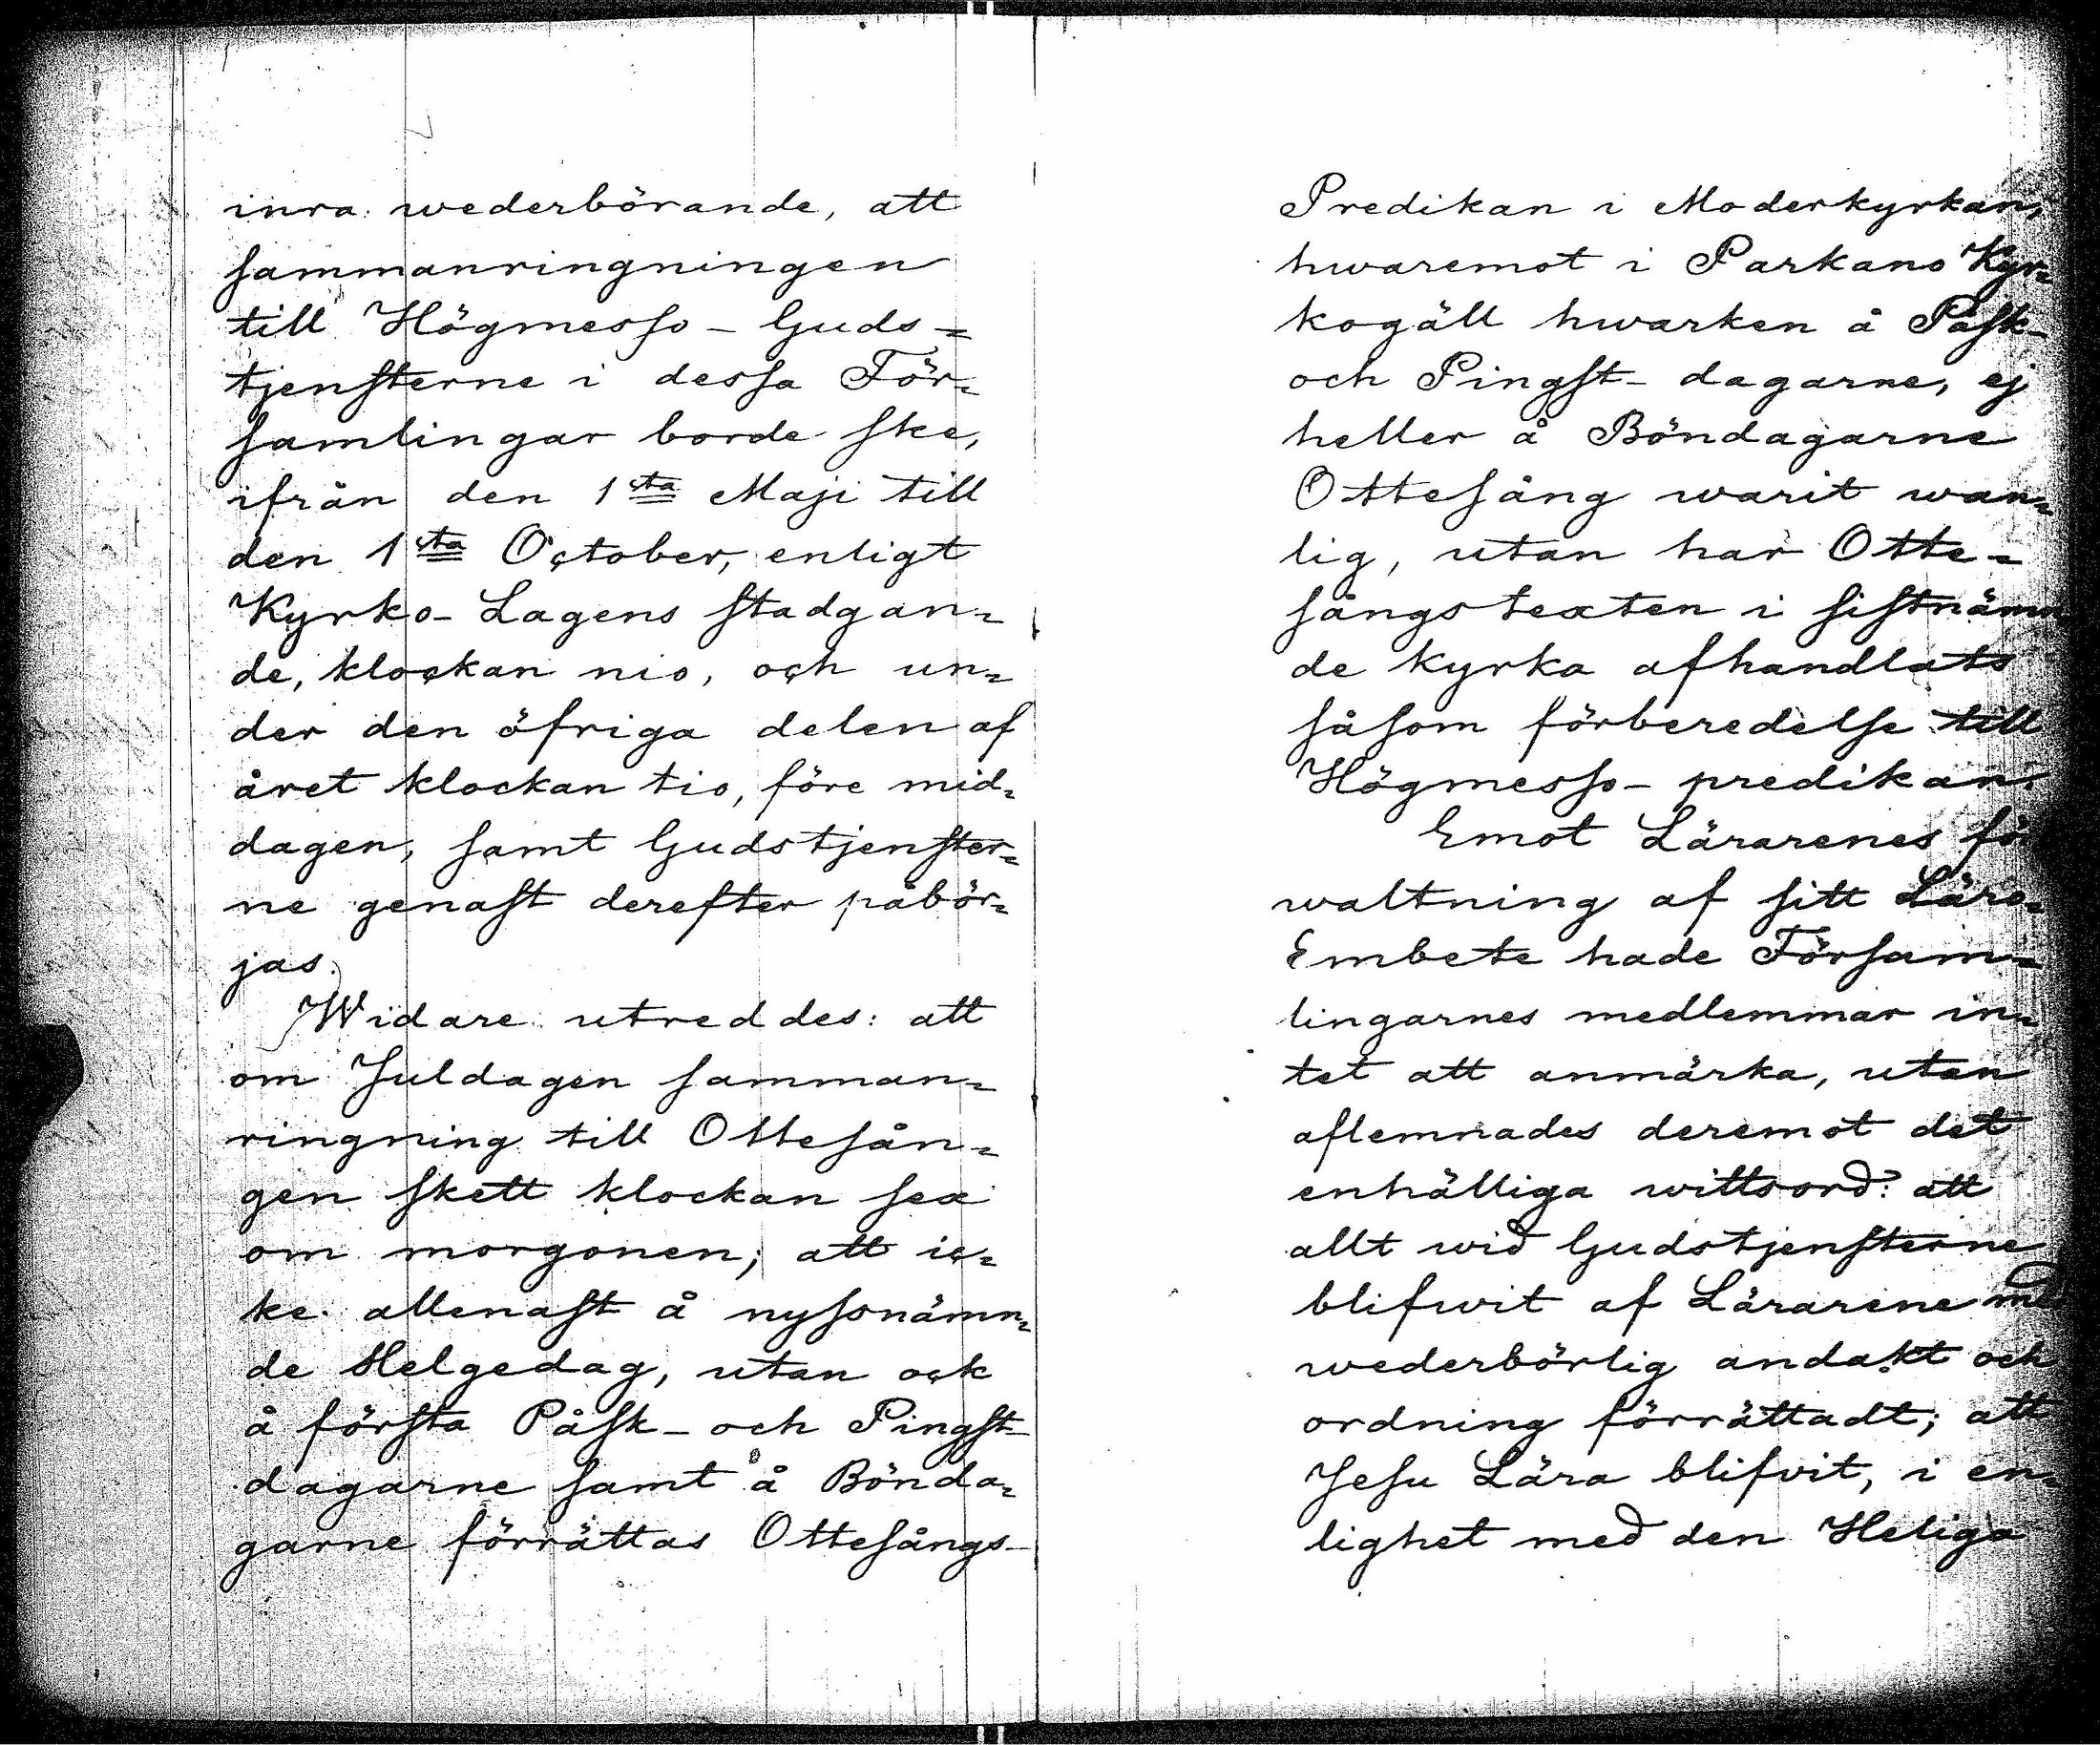 inra wederbörande, att
sammanringningen
till Högmesso-Guds=
tjensterne i dessa För=
samlingar borde ske,
ifrån den 1sta Maji till
den 1sta October, enligt
Kyrko-Lagens stadgan=
de, klockan nio, och un=
der den öfriga delen af
året klockan tio, före mid=
dagen, samt Gudstjenster=
ne genast derefter påbör=
jas.
Widare utreddes: att
om Juldagen samman=
ringning till Ottesån=
gen skett klockan sex
om morgonen; att ic=
ke allenast å nyssnämn=
de Helgedag, utan ock
å första Påsk- och Pingst-
dagarne samt å Bönda=
garne förrättas Ottesångs-
Predikan i Moderkyrkan,
hwaremot i Parkano Kyr=
kogäll hwarken å Påsk-
och Pingst-dagarne, ej
heller å Böndagarne
Ottesång warit wan=
lig, utan har Otte=
sångstexten i sistnäm
de kyrka afhandlats
såsom förberedelse till
Högmesso-predikan.
Emot Lärarenes för
waltning af sitt Läro=
Embete hade Försam=
lingarnes medlemmar in=
tet att anmärka, utan
aflemnades deremot det
enhälliga wittsord: att
allt wid Gudstjensterne
blifwit af Lärarene med
wederbörlig andakt och
ordning förrättadt; att
Jesu Lära blifvit, i en=
lighet med den Heliga